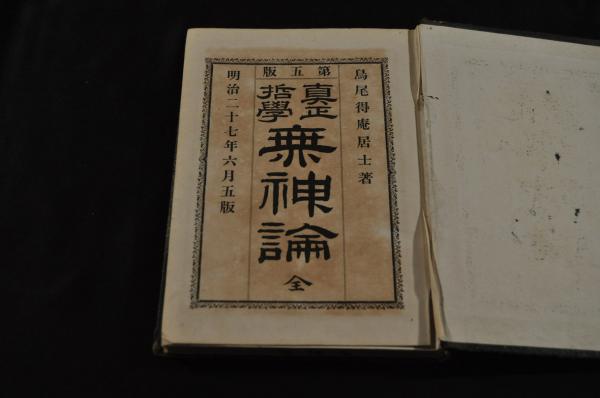 第五版
鳥尾得庵居士著
真正
哲學
無神論
全
明治二十七年六月五版